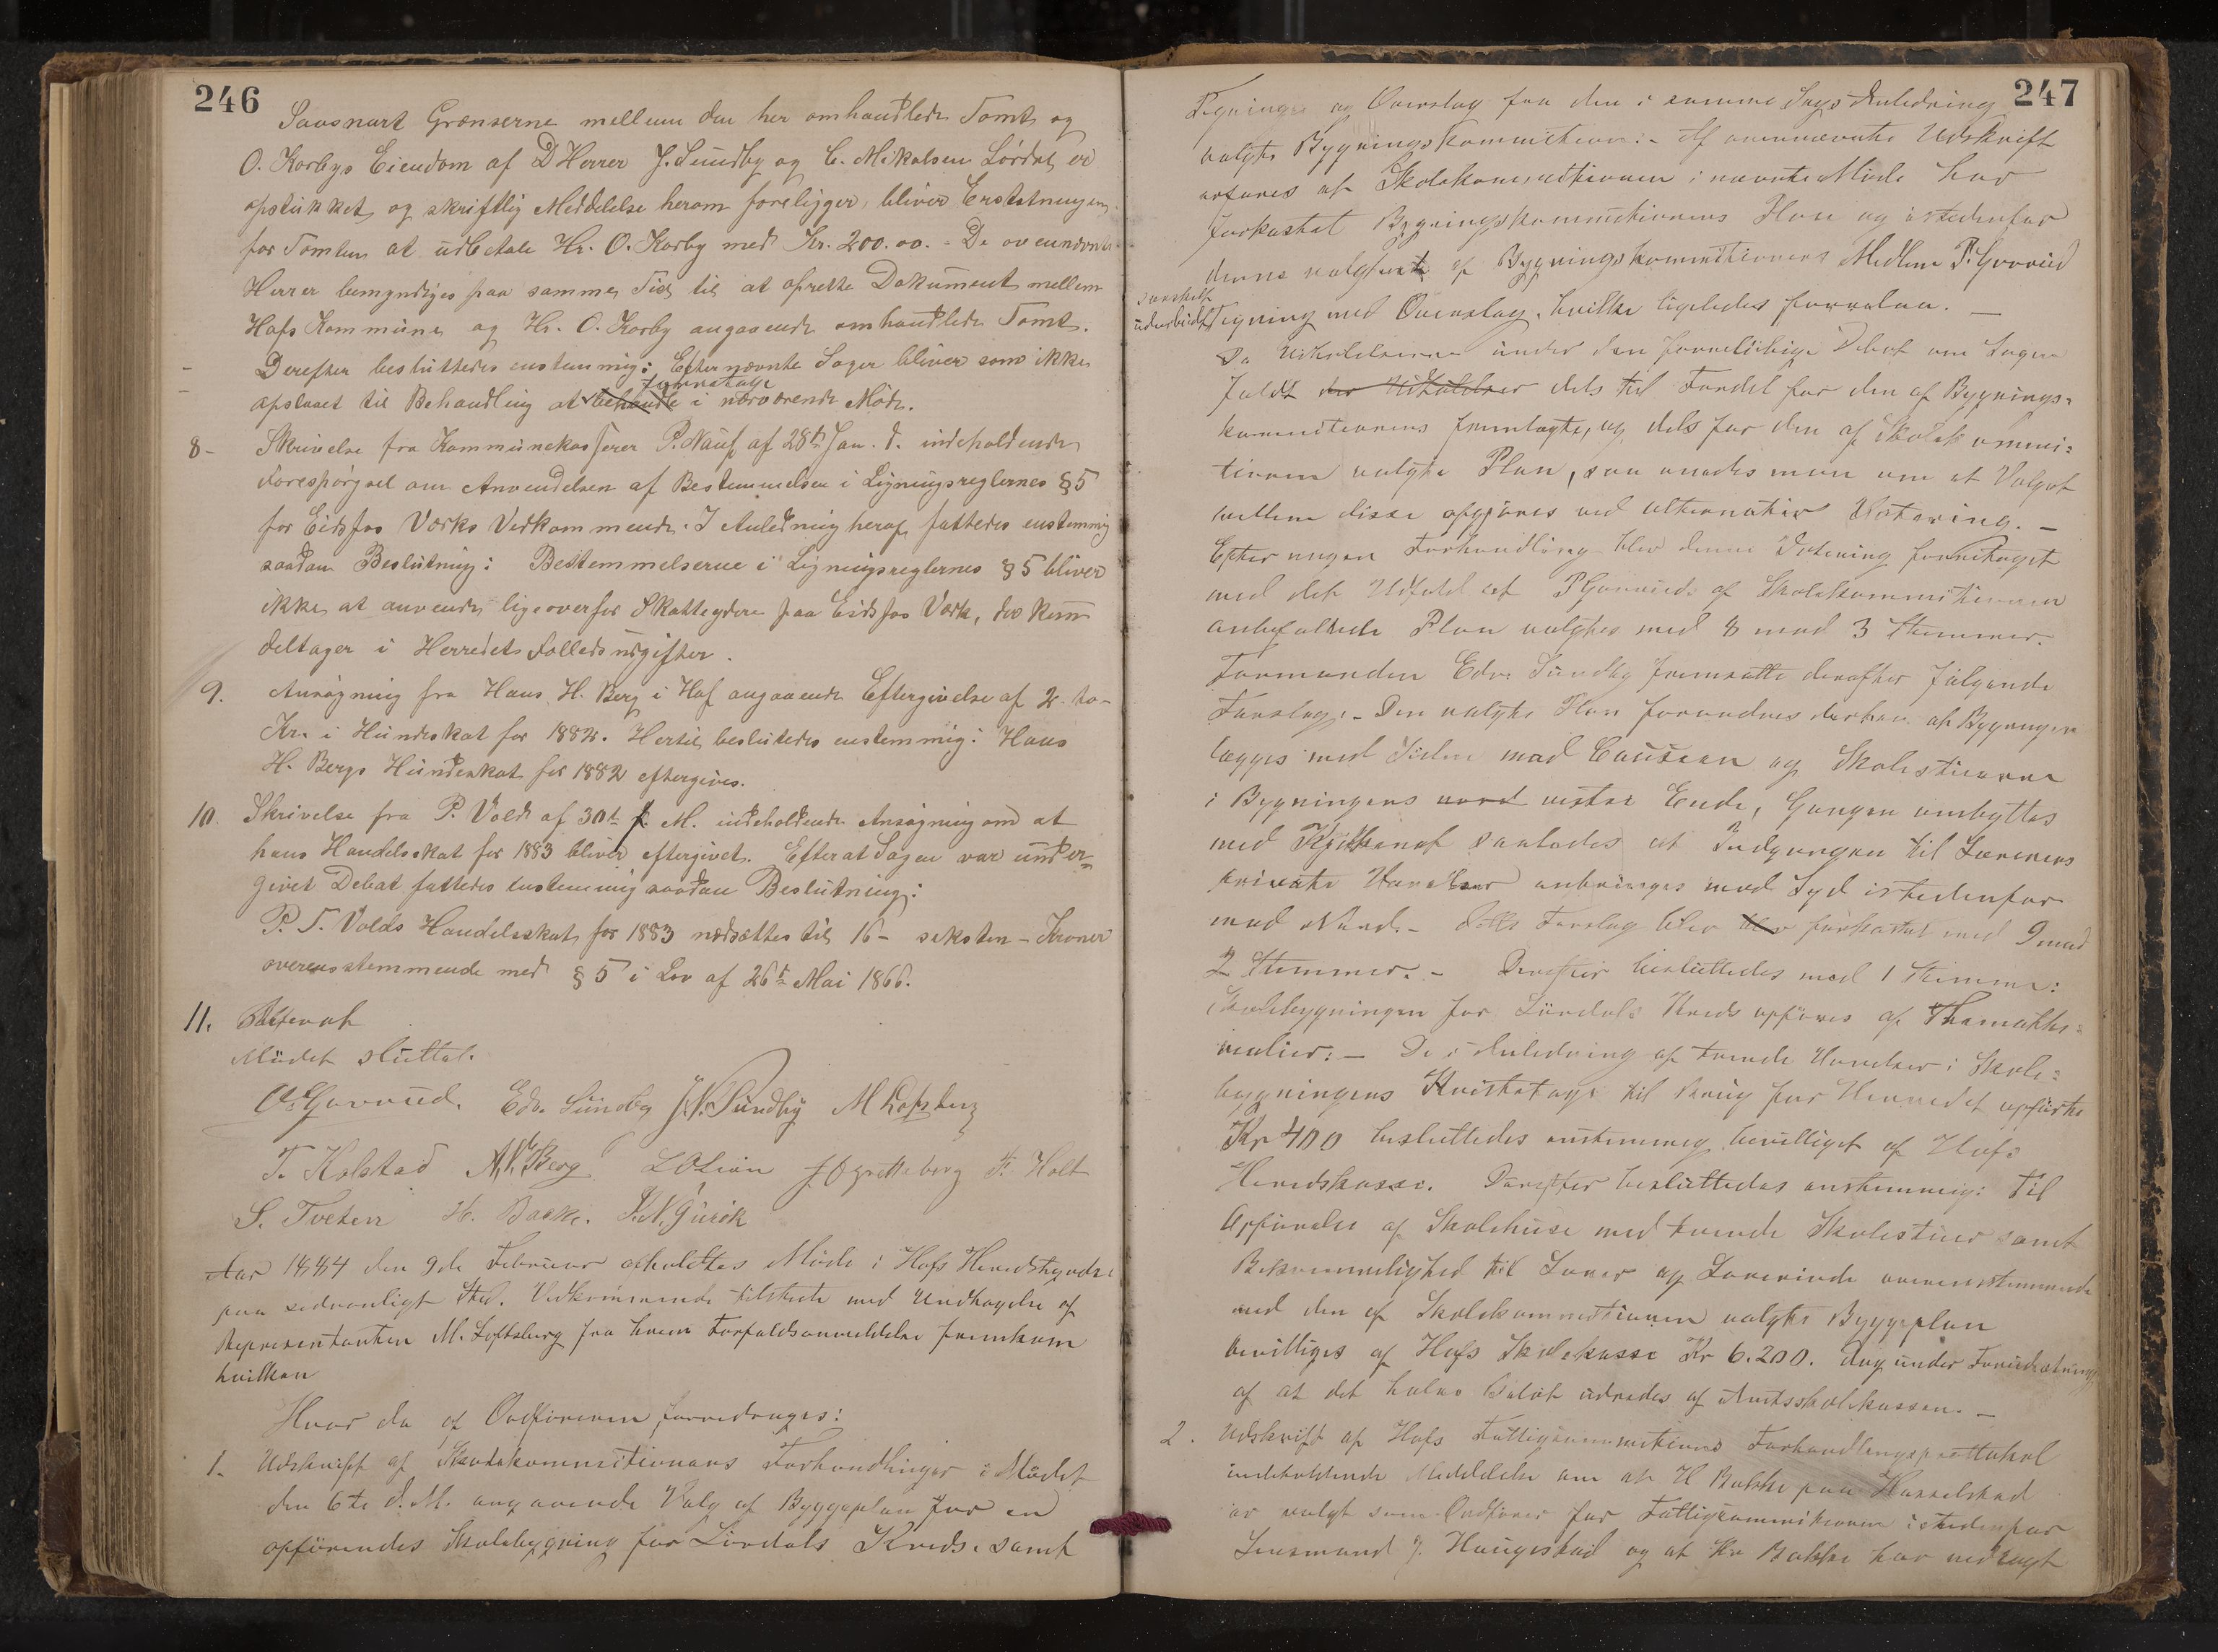 246
Saasnart Grænserne mellem den her omhandlede Tomt og
O. Korbys Eiendom af D'Herrer J. Sundby og C. Mikalsen Lördal er
opstukket og skriftlig Meddelelse herom foreligger, bliver Erstatningen
for Tomten at udbetale Hr. O. Korby med Kr. 200.00. - De ovennævnte
Herrer bemyndiges paa samme Tid til at oprette Dokument mellem
Hofs Kommune og Hr. O. Korby angaaende omhandlede Tomt.
Derefter besluttedes enstemmig: Efternævnte Sager bliver som ikke
opslaaet til Behandling at behandle foretage i nærværende Möde.
8- Skrivelse fra Kommunekasserer P. Nauf af 28de Jan. d. indeholdende
Forespörgsel om Anvendelsen af Bestemmelsen i Ligningsreglernes § 5
for Eidsfos Værks Vedkommende. I Anledning heraf fattedes enstemmig
saadan Beslutning: Bestemmelserne i Ligningsreglernes § 5 bliver
ikke at anvende ligeoverfor Skatteydere paa Eidsfos Værk, der kun
deltager i Herredets Fælledsudgifter.
9. Ansögning fra Hans H. Berg i Hof angaaende Eftergivelse af 2 to-
Kr. i Hundeskat for 1882. Hertil besluttedes enstemmig: Hans
H. Bergs Hundeskat for 1882 eftergives.
10. Skrivelse fra P. Vold af 30te f. M. indeholdende Ansögning om at
hans Handelsskat for 1883 bliver eftergivet. Efterat Sagen var under-
givet Debat fattedes enstemmig saadan Beslutning:
P. T. Volds Handelsskat for 1883 nedsættes til 16 - seksten - Kroner
overensstemmende med § 5 i Lov af 26de Mai 1866.
11. Referat
Mödet sluttet.
O. Gavrud. Edv. Sundby J. N. Sundby M Loftsberg
T. Holstad A. N. Berg L O Lien J Ogretteberg F. Holt
S. Tveten H. Bakke.
Aar 1884 den 9de Februar afholdtes Möde i Hofs Herredstyrelse
paa sedvanligt Sted. Vedkommende tilstede med Undtagelse af
Representanten M. Loftsberg fra hvem Forfaldsanmeldelse fremkom
hvilken
Hvor da af Ordföreren foredroges:
1. Udskrift af Skolekommisionens Forhandlinger i Mödet
den 6te d. M. angaaende Valg af Byggeplan for en
opförendes Skolebygning for Lördals Kreds samt
247
Tegninger og Overslag fra den i samme Sags Anledning
valgte Bygningskommission: - Af ovennævnte Udskrift
erfares at Skolekommissionen i nævnte Möde har
forkastet Bygningskommissionens Plan og istedenfor
denne valgt et af Bygningskommissionens Medlem P. Gavrud
særskilt
udarbeidet Tegning med Overslag, hvilke ligeledes forelaa. -
Da Udtalelserne under den foreløbige Debat om Sagen
faldt der Udtalelser dels til Fordel for den af Bygnings=
kommissionens fremlagte, og dels for den af Skolekommi=
sionen valgte Plan, saa enedes man om at Valget
mellem disse afgjöres ved alternativ Votering. -
Efter nogen Forhandling blev denne Votering foretaget
med det Udfald at P Gavruds af Skolekommissionen
anbefalede Plan valgtes med 8 mod 3 Stemmer.
Formanden Edv. Sundby fremsatte derefter fölgende
Forslag: - Den valgte Plan forandres derhen at Bygningen
lægges med Siden mod Causeen og Skolestuerne
i Bygningens nord vestre Ende, Gangen ombyttes
med Kjökkenet saaledes at Indgangen til Lærerens
private Værelser anbringes mod Syd istedenfor
mod Nord. - Dette Forslag blev blev forkastet med 9 mod
2 Stemmer. - Derefter besluttedes med 1 Stemme:
Skolebygningen for Lördals Kreds opföres af
- De i Anledning af tvende Værelser i Skole=
bygningens Kvistetage til Brug for Herredet opförte
Kr 400 besluttedes enstemmig bevilliget af Hofs
Heredskasse. Derefter besluttedes enstemmig: Til
Opförelse af Skolehuse med tvende Skolestuer samt
Bekvemmelighed til Lærer og Lærerinde overensstemmende
med den af Skolekommissionen valgte Byggeplan
bevilliges af Hofs Skolekasse Kr 6.200. dog under Forudsætning
af at det halve Belöb udredes af Amtsskolekassen. -
2. Udskrift af Hofs Fattigkommisions Forhandlingsprottokol
indeholdende Meddelelse om at H Bakke paa Hasselstad
er valgt som Ordförer for Fattigkommisionen istedenfor
Lensmand J. Haugestad og at Hr Bakke har nedlagt